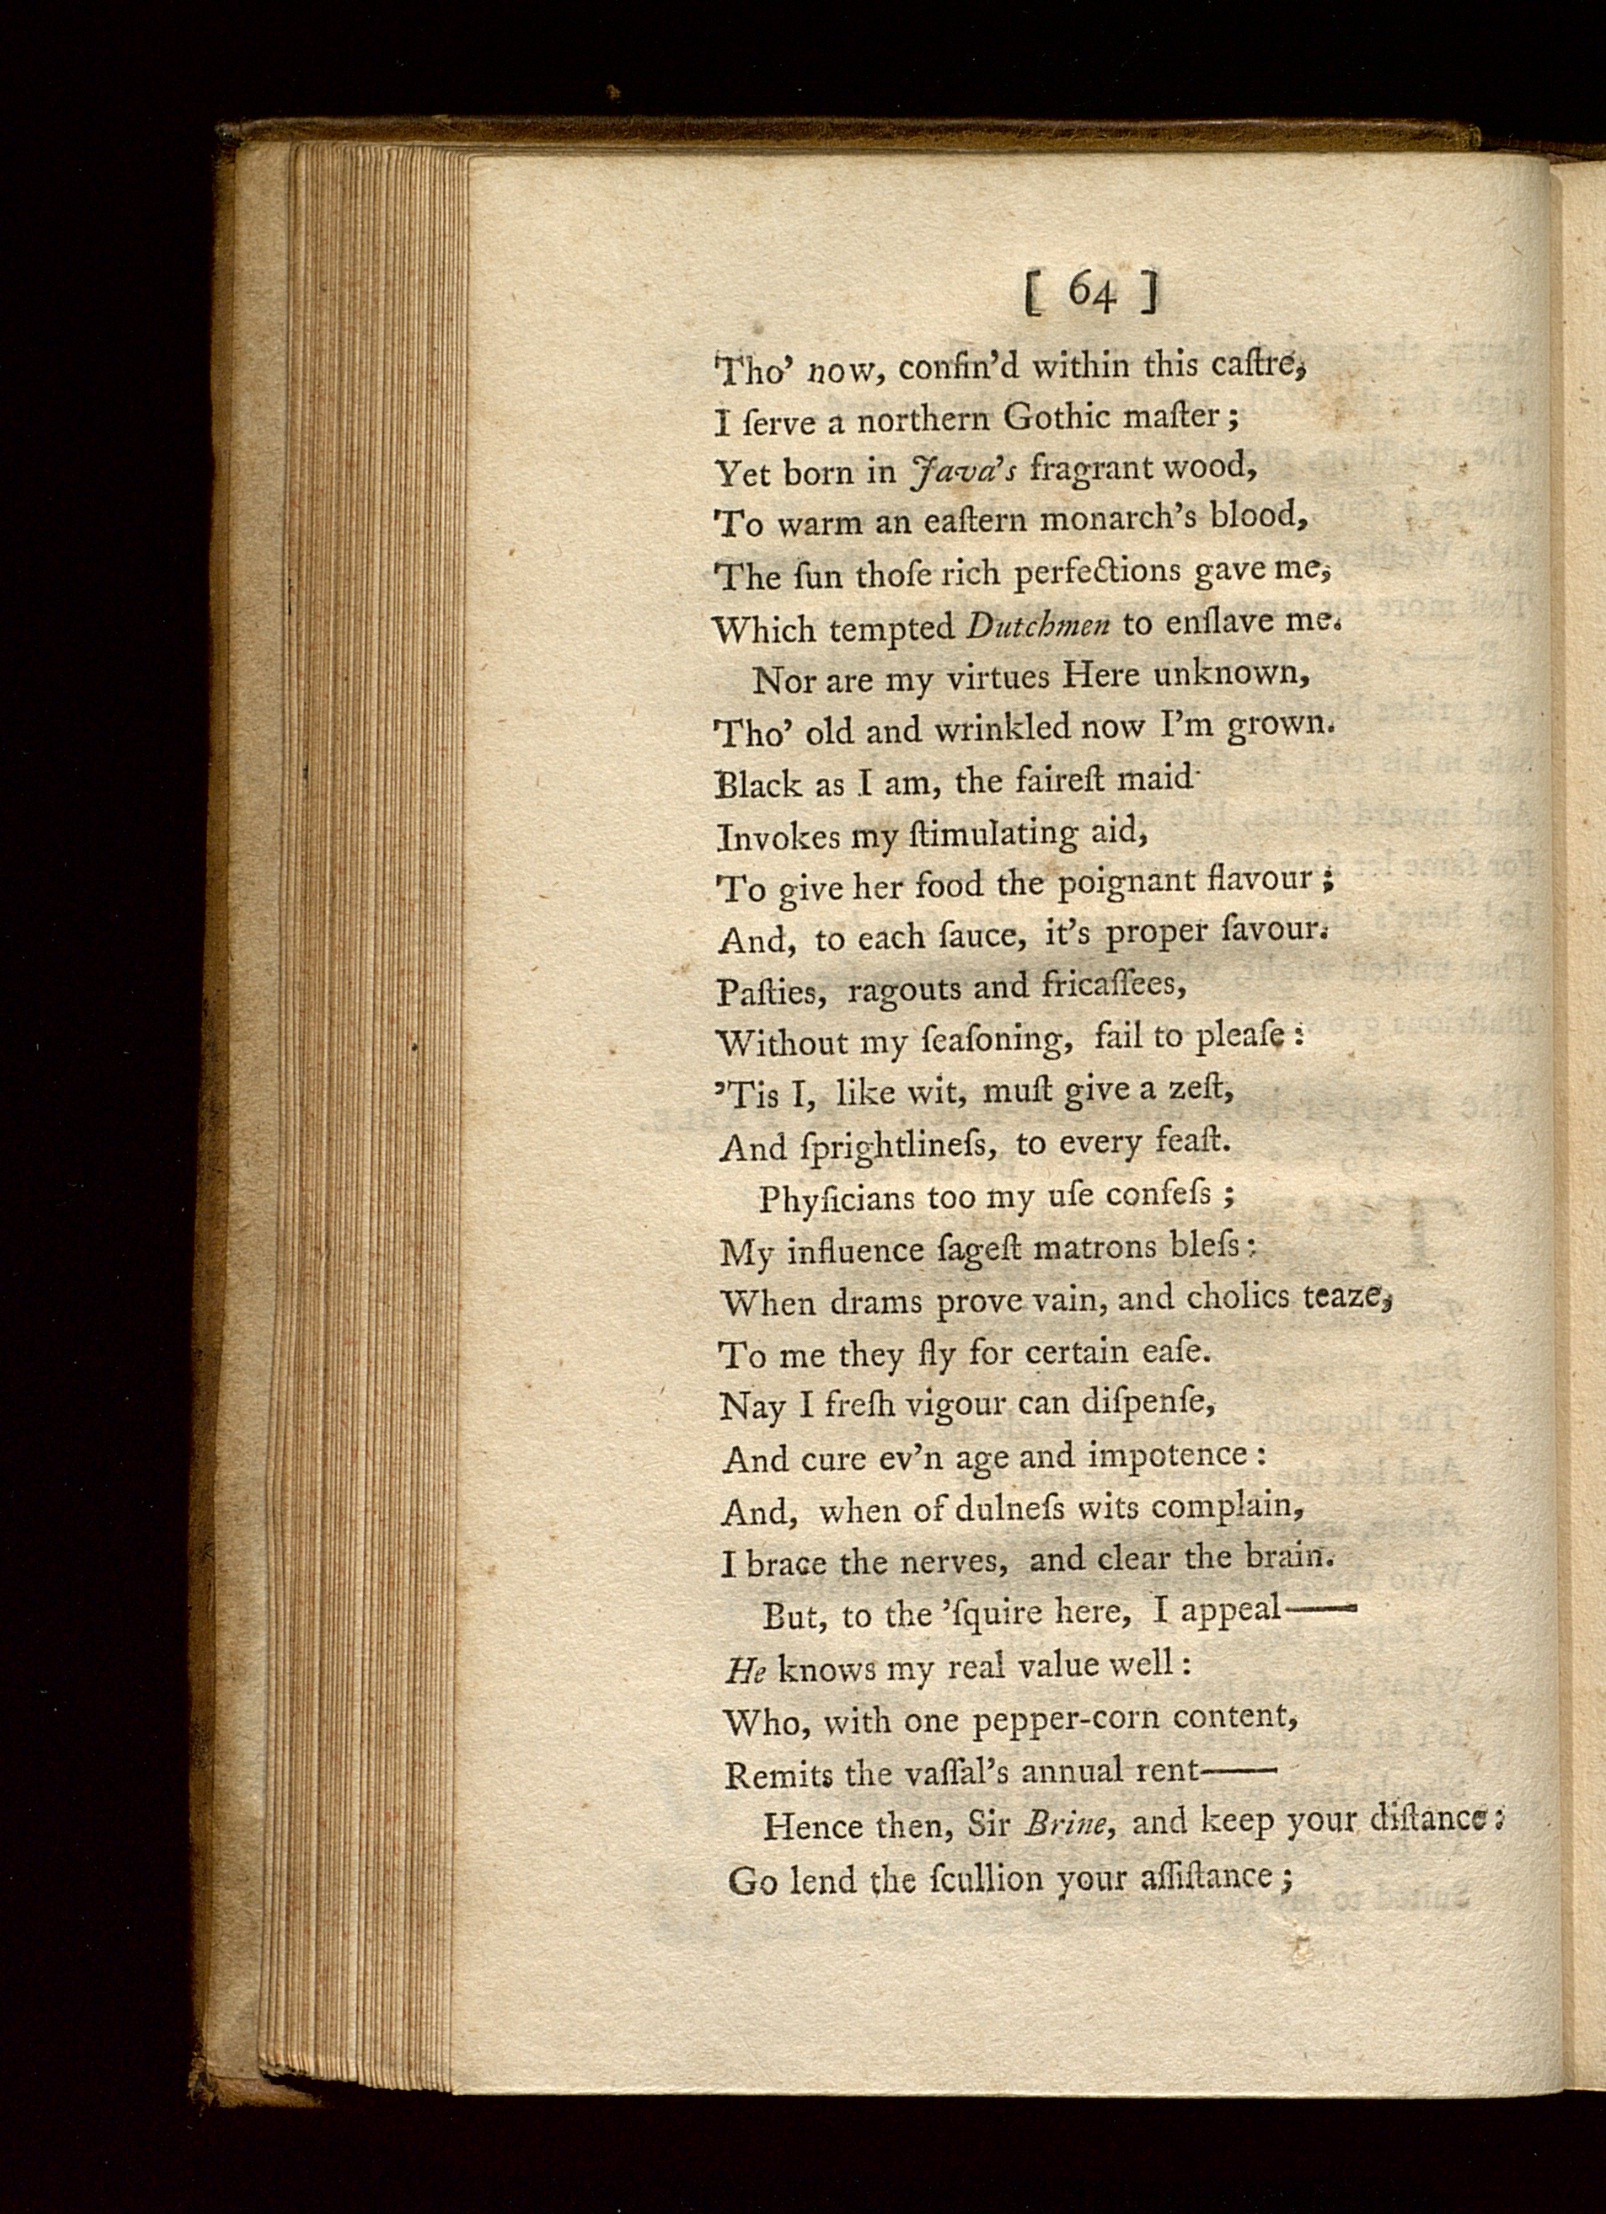 [ 64 ]
Tho' now, confin'd within this caſtre,
I ſerve a northern Gothic maſter;
Yet born in Java's fragrant wood,
To warm an eaſtern monarch's blood,
The ſun thoſe rich perfections gave me,
Which tempted Dutchmen to enſlave me.
Nor are my virtues Here unknown,
Tho' old and wrinkled now I'm grown.
Black as I am, the faireſt maid
Invokes my ſtimulating aid,
To give her food the poignant flavour;
And, to each ſauce, it's proper ſavour.
Paſties, ragouts and fricaſſees,
Without my ſeaſoning, fail to pleaſe:
'Tis I, like wit, muſt give a zeſt,
And ſprightlineſs, to every feaſt.
Phyſicians too my uſe confeſs;
My influence ſageſt matrons bleſs:
When drams prove vain, and cholics teaze,
To me they fly for certain eaſe.
Nay I freſh vigour can diſpenſe,
And cure ev'n age and impotence:
And, when of dulneſs wits complain,
I brace the nerves, and clear the brain.
But, to the 'ſquire here, I appeal——
He knows my real value well:
Who, with one pepper-corn content,
Remits the vaſſal's annual rent——
Hence then, Sir Brine, and keep your diſtance:
Go lend the ſcullion your aſſiſtance;